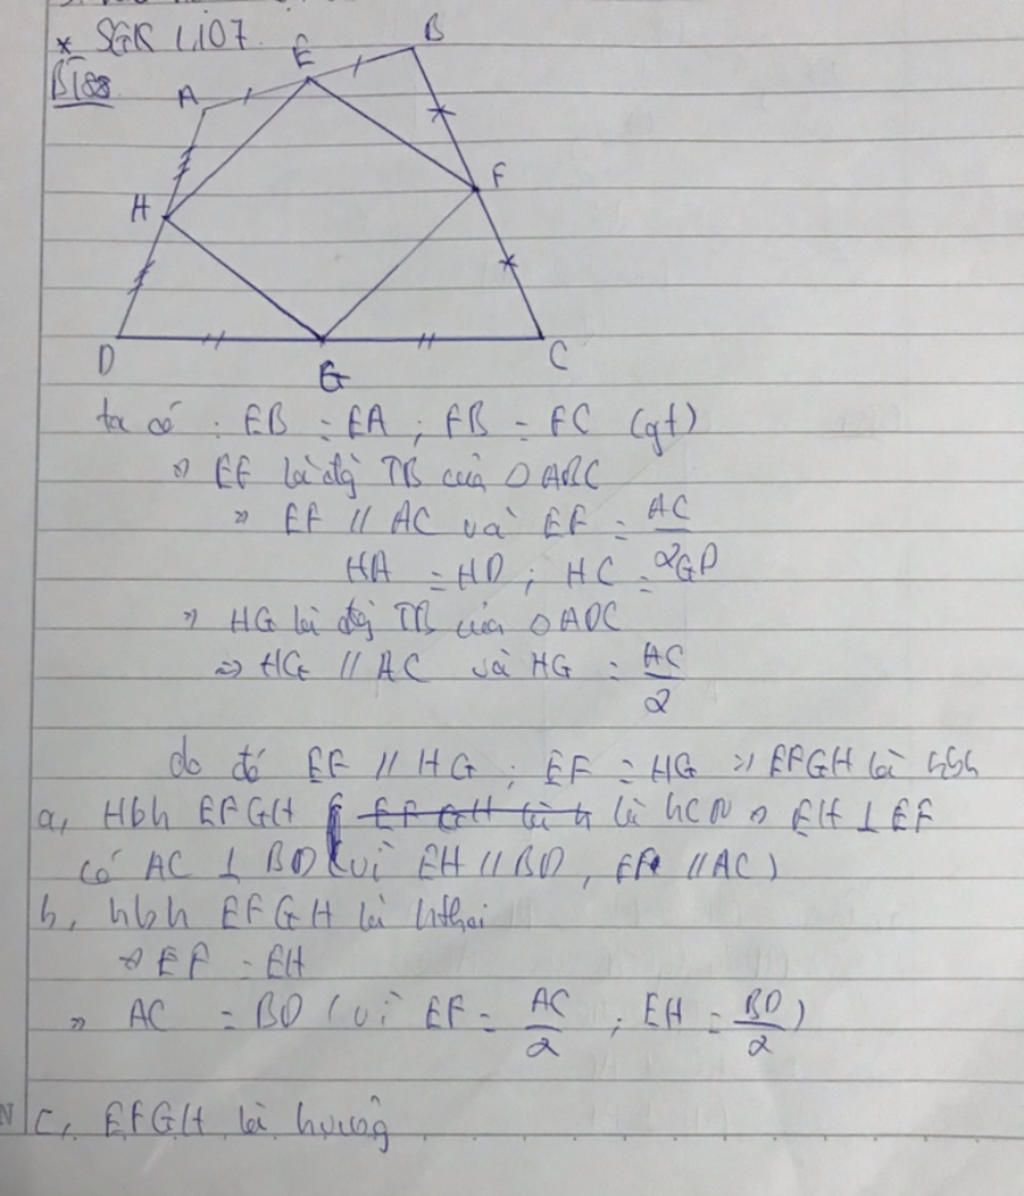 * SGK t,107
B
E
BT88
A
F
H
D
G
C
ta có : EB = EA ; FB = FC (gt)
=> EF là đg TB của △ABC
=> EF // AC và EF = AC/2
HA = HD ; HC = GD
=> HG là đg TB của △ADC
=> HG // AC và HG = AC/2
do đó EF // HG ; EF = HG => EFGH là hbh
a, Hbh EFGH là hCN => EH ⊥ EF
có AC ⊥ BD (vì EH // BD, EF // AC)
b, hbh EFGH là hthoi
=> EF = EH
=> AC = BD (vì EF = AC/2 ; EH = BD/2)
c, EFGH là hvuông